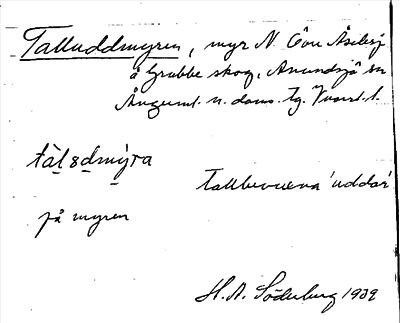 Talluddmyren, myr N. Ö om Åselesj
å Grubbe skog, Anundsjö sn
Ångerml. n. doms. tg. Vnorrl. l.
tàl sdmýra
Tallbevuxna 'uddar'
på myren
H. A. Söderberg 1939